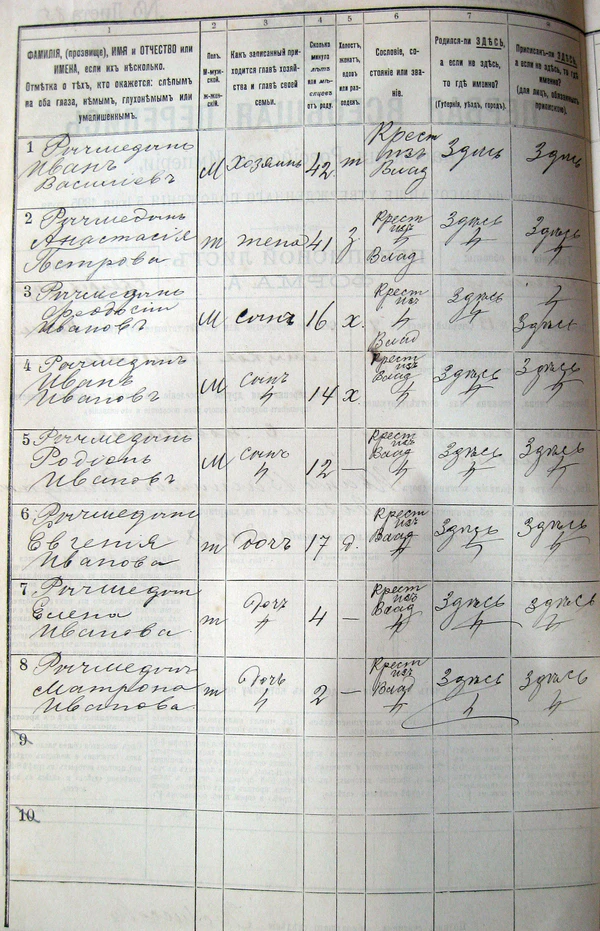 1 2 3 4 5 6 7 8
ФАМИЛІЯ, (прозвище), ИМЯ и ОТЧЕСТВО или
ИМЕНА, если ихъ нѣсколько.
Отмѣтка о тѣхъ, кто окажется: слѣпымъ
на оба глаза, нѣмымъ, глухонѣмымъ или
умалишеннымъ.
Полъ.
М-мужской.
Ж-женскій.
Какъ записанный при-
ходится главѣ хозяй-
ства и главѣ своей
семьи.
Сколько
минуло
лѣтъ
или мѣ-
сяцевъ
отъ роду.
Холостъ,
женатъ,
вдовъ
или раз-
веденъ.
Сословіе, со-
стояніе или зва-
ніе.
Родился-ли ЗДѢСЬ,
а если не здѣсь,
то гдѣ именно?
(Губернія, уѣздъ, городъ).
Приписанъ-ли ЗДѢСЬ,
а если не здѣсь, то гдѣ
именно?
(для лицъ, обязанныхъ
припискою).
1
Иванъ
Васильевъ
М Хозяинъ 42 ж Крест
изъ
Влад
Здѣсь Здѣсь
2
Анастасія
Петрова
ж жена 41 з Крест
изъ
Влад
Здѣсь Здѣсь
3
Феодосій
Ивановъ
М сынъ 16 х. Крест
изъ
Влад
Здѣсь Здѣсь
4
Иванъ
Ивановъ
М Сынъ 14 х. Крест
изъ
Влад
Здѣсь Здѣсь
5
Родіонъ
Ивановъ
М Сынъ 12 — Крест
изъ
Влад
Здѣсь Здѣсь
6
Евгенія
Иванова
ж Дочь 17 д. Крест
изъ
Влад
Здѣсь Здѣсь
7
Елена
Иванова
ж Дочь 4 — Крест
изъ
Влад
Здѣсь Здѣсь
8
Матрона
Иванова
ж Дочь 2 — Крест
изъ
Влад
Здѣсь Здѣсь
9
10